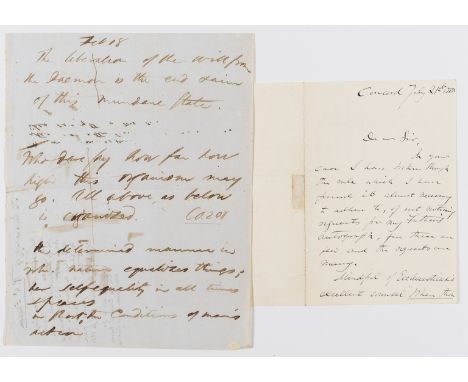 Feb 18
The liberation of the Will from
the Daemon is the end & aim
of this mundane State.
Who dare say how far how
high this organism may
go. All above as below
is organized. CO 201
A determined manner in
wh. nature equalizes things;
her self-equality in all times
& places
in Part, the conditions of man's
action.
Concord July 21st
Dear Sir,
In your
case I have broken through
the rule which I have
found it almost necessary
to adhere to, of not noticing
requests for my Father's
autograph, for these are
few and the requests are
many.
Mindful of Ecclesiasticus's
excellent counsel "When thou